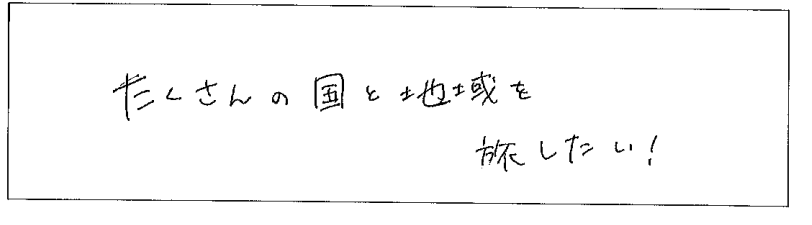 たくさんの国と地域を
旅したい!